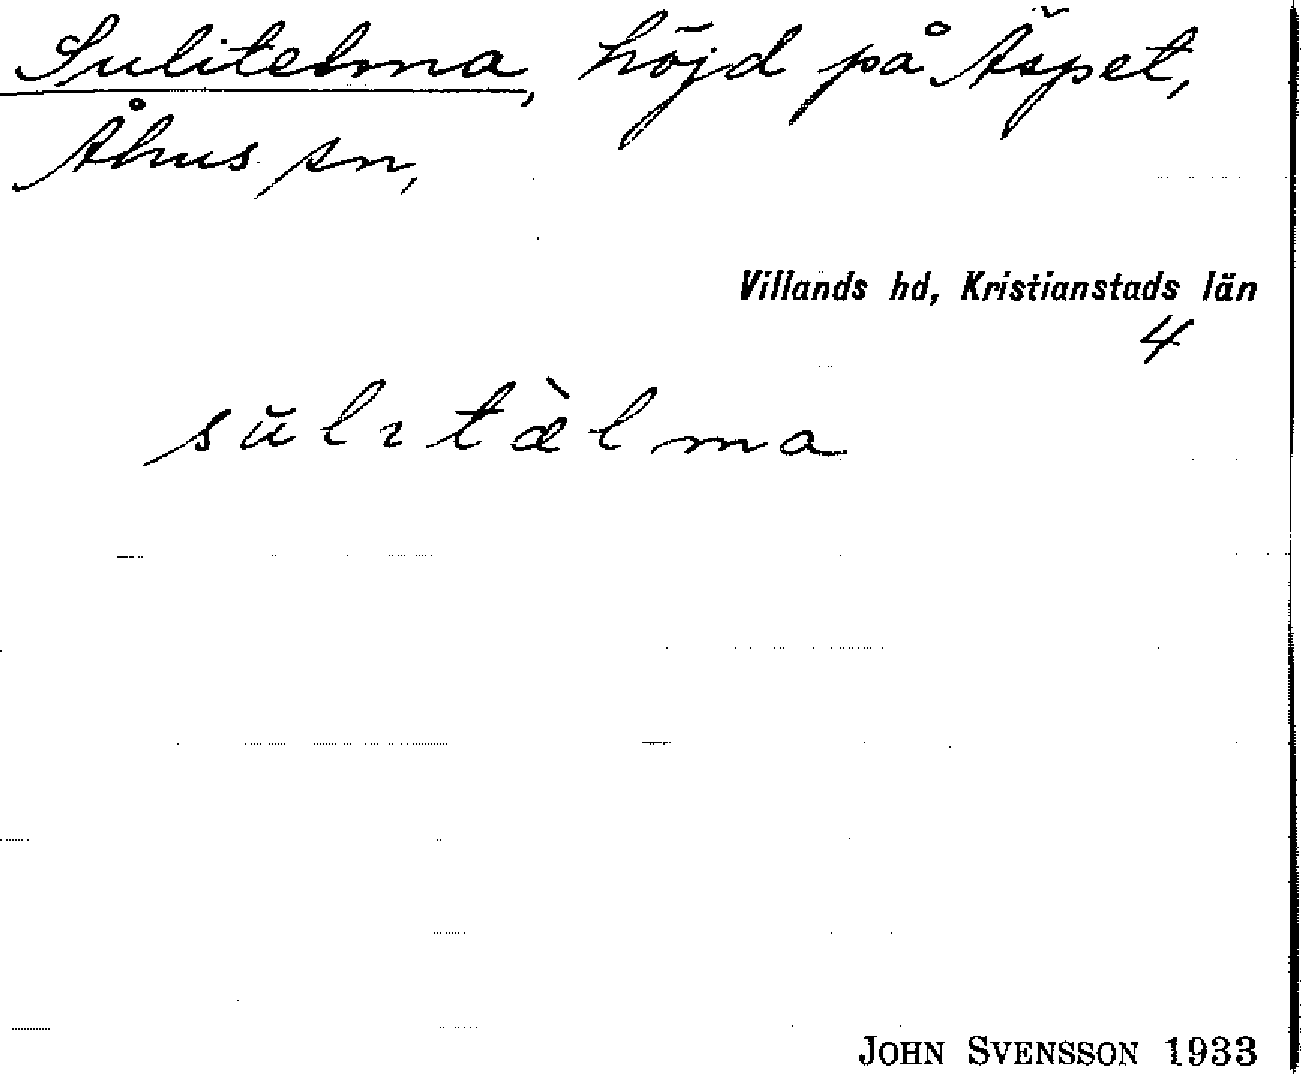 Sulitelma, höjd på Äspet,
Åhus sn,
Villands hd, Kristianstads län
4
sŭlıtæ̀lma
JOHN SVENSSON 1933